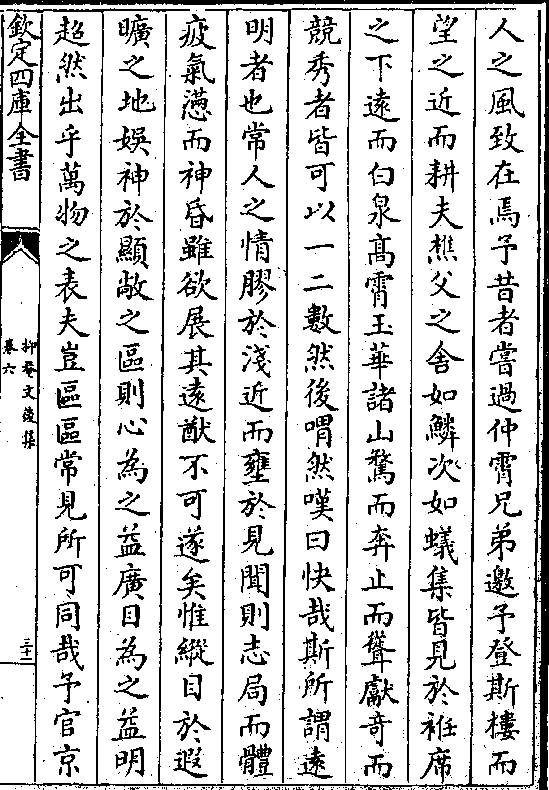 人之風致在焉予昔者嘗過仲霄兄弟邀予登斯樓而
望之近而耕夫樵父之舍如鱗次如蟻集皆見於袵席
之下遠而白泉髙霄玉華諸山騖而奔止而聳獻奇而
競秀者皆可以一二數然後喟然嘆曰快哉斯所謂遠
明者也常人之情膠於淺近而壅於見聞則志局而體
疲氣懣而神昏雖欲展其遠猷不可遂矣惟縱目於遐
曠之地娛神於顯敞之區則心為之益廣目為之益明
超然出乎萬物之表夫豈區區常見所可同哉予官京
欽定四庫全書
抑菴文後集
卷六
三十二